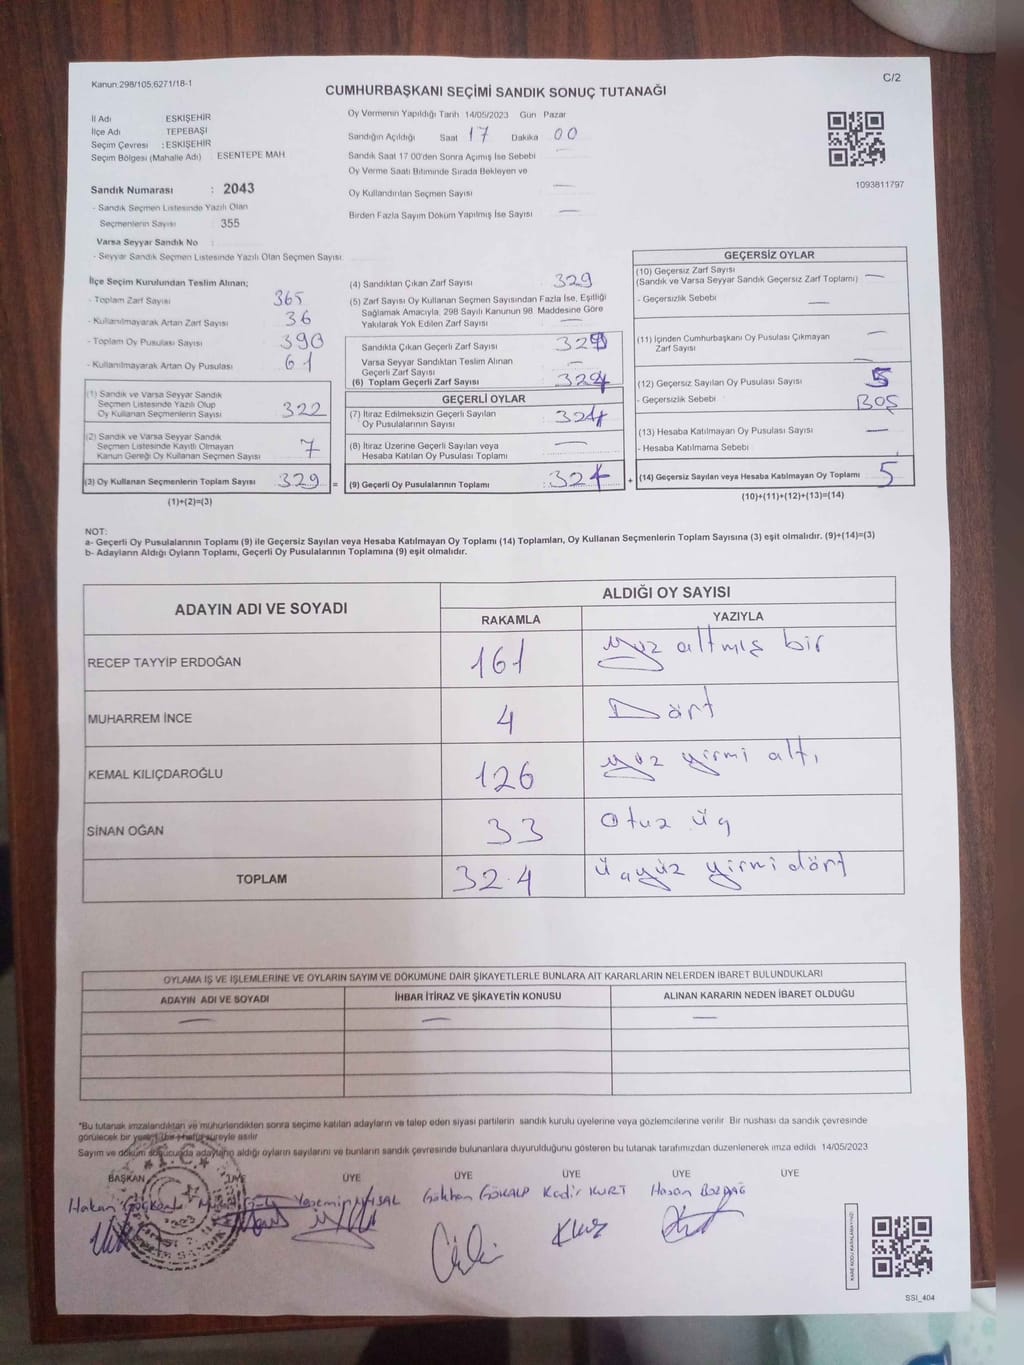 Kanun 298/105,6271/18-1
C/2
CUMHURBAŞKANI SEÇİMİ SANDIK SONUÇ TUTANAĞI
İl Adı ESKİŞEHİR
İlçe Adı TEPEBAŞI
Seçim Çevresi : ESKİŞEHİR
Seçim Bölgesi (Mahalle Adı) ESENTEPE MAH
Sandık Numarası : 2043
- Sandık Seçmen Listesinde Yazılı Olan
Seçmenlerin Sayısı 355
Varsa Seyyar Sandık No :
- Seyyar Sandık Seçmen Listesinde Yazılı Olan Seçmen Sayısı
Oy Vermenin Yapıldığı Tarih 14/05/2023 Gün Pazar
Sandığın Açıldığı Saat 17 Dakika 00
Sandık Saat 17 00'den Sonra Açımış İse Sebebi —
Oy Verme Saati Bitiminde Sırada Bekleyen ve
Oy Kullandırılan Seçmen Sayısı —
Birden Fazla Sayım Döküm Yapılmış İse Sayısı —
1093811797
İlçe Seçim Kurulundan Teslim Alınan;
- Toplam Zarf Sayısı 365
- Kullanılmayarak Artan Zarf Sayısı 36
- Toplam Oy Pusulası Sayısı 390
- Kullanılmayarak Artan Oy Pusulası 61
(1) Sandık ve Varsa Seyyar Sandık
Seçmen Listesinde Yazılı Olup
Oy Kullanan Seçmenlerin Sayısı 322
(2) Sandık ve Varsa Seyyar Sandık
Seçmen Listesinde Kayıtlı Olmayan
Kanun Gereği Oy Kullanan Seçmen Sayısı 7
(3) Oy Kullanan Seçmenlerin Toplam Sayısı 329 =
(1)+(2)=(3)
(4) Sandıktan Çıkan Zarf Sayısı 329
(5) Zarf Sayısı Oy Kullanan Seçmen Sayısından Fazla İse, Eşitliği
Sağlamak Amacıyla, 298 Sayılı Kanunun 98 Maddesine Göre
Yakılarak Yok Edilen Zarf Sayısı —
Sandıkta Çıkan Geçerli Zarf Sayısı 329
Varsa Seyyar Sandıktan Teslim Alınan
Geçerli Zarf Sayısı —
(6) Toplam Geçerli Zarf Sayısı
GEÇERLİ OYLAR
(7) İtiraz Edilmeksizin Geçerli Sayılan
Oy Pusulalarının Sayısı 324
(8) İtiraz Üzerine Geçerli Sayılan veya
Hesaba Katılan Oy Pusulası Toplamı —
(9) Geçerli Oy Pusulalarının Toplamı : 324 +
GEÇERSİZ OYLAR
(10) Geçersiz Zarf Sayısı
(Sandık ve Varsa Seyyar Sandık Geçersiz Zarf Toplamı) —
- Geçersizlik Sebebi —
(11) İçinden Cumhurbaşkanı Oy Pusulası Çıkmayan
Zarf Sayısı —
(12) Geçersiz Sayılan Oy Pusulası Sayısı 5
- Geçersizlik Sebebi BOŞ
(13) Hesaba Katılmayan Oy Pusulası Sayısı —
- Hesaba Katılmama Sebebi
(14) Geçersiz Sayılan veya Hesaba Katılmayan Oy Toplamı 5
(10)+(11)+(12)+(13)=(14)
NOT:
a- Geçerli Oy Pusulalarının Toplamı (9) ile Geçersiz Sayılan veya Hesaba Katılmayan Oy Toplamı (14) Toplamları, Oy Kullanan Seçmenlerin Toplam Sayısına (3) eşit olmalıdır. (9)+(14)=(3)
b- Adayların Aldığı Oyların Toplamı, Geçerli Oy Pusulalarının Toplamına (9) eşit olmalıdır.
ADAYIN ADI VE SOYADI
ALDIĞI OY SAYISI
RAKAMLA YAZIYLA
RECEP TAYYİP ERDOĞAN 161 yüz altmış bir
MUHARREM İNCE 4 Dört
KEMAL KILIÇDAROĞLU 126 yüz yirmi altı
SİNAN OĞAN 33 Otuz üç
TOPLAM 324 üçyüz yirmi dört
OYLAMA İŞ VE İŞLEMLERİNE VE OYLARIN SAYIM VE DÖKÜMÜNE DAİR ŞİKAYETLERLE BUNLARA AİT KARARLARIN NELERDEN İBARET BULUNDUKLARI
ADAYIN ADI VE SOYADI İHBAR İTİRAZ VE ŞİKAYETİN KONUSU ALINAN KARARIN NEDEN İBARET OLDUĞU
— — —
*Bu tutanak imzalandıktan ve mühürlendikten sonra seçime katılan adayların ve talep eden siyasi partilerin sandık kurulu üyelerine veya gözlemcilerine verilir Bir nushası da sandık çevresinde
görülecek bir yere bir hafta süreyle asılır
Sayım ve döküm sonucunda adayların aldığı oyların sayılarını ve bunların sandık çevresinde bulunanlara duyurulduğunu gösteren bu tutanak tarafımızdan düzenlenerek imza edildi 14/05/2023
BAŞKAN ÜYE ÜYE ÜYE ÜYE ÜYE ÜYE
Hakan Yasemin Gökhan GÖKALP Kadir KURT Hasan BOZDAĞ
T.C.
KARE KODU KARALAMAYINIZ!
SSI_404